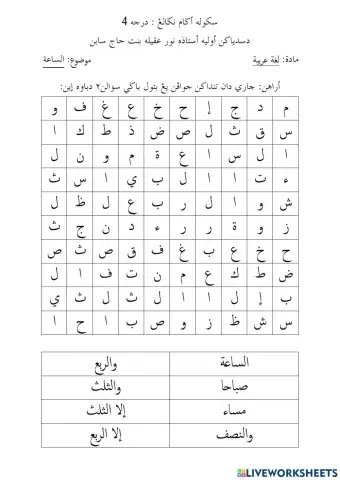 سكوله أكام نكالڠ : درجه 4
دسدياكن أوليه أستاذه نور عقيله بنت حاج سابن
مادة: لغة عربية موضوع: الساعة
أراهن: چاري دان تنداكن جواڤن يڠ بتول باݢي سوالن٢ دباوه إين:
م د ج إ ح خ ع غ ف و
س ق ث ل ص ض ذ ط ك ا
ا ل س ا ع ة م و ن ل
ء ت ا ا ل ب ي ا س ث
ش و ا ل ر ب ع ل ظ ل
ز و ة ر ر ء د ن ج ث
ح خ ع ب غ ف ق ص ث ص
ض ط ك ع م ن ت ف ا ل
ب إ ل ا ا ل ث ل ث ي
س ش ظ ز و ص ب ا ح ا
الساعة والربع
صباحا والثلث
مساء إلا الثلث
والنصف إلا الربع
LIVEWORKSHEETS